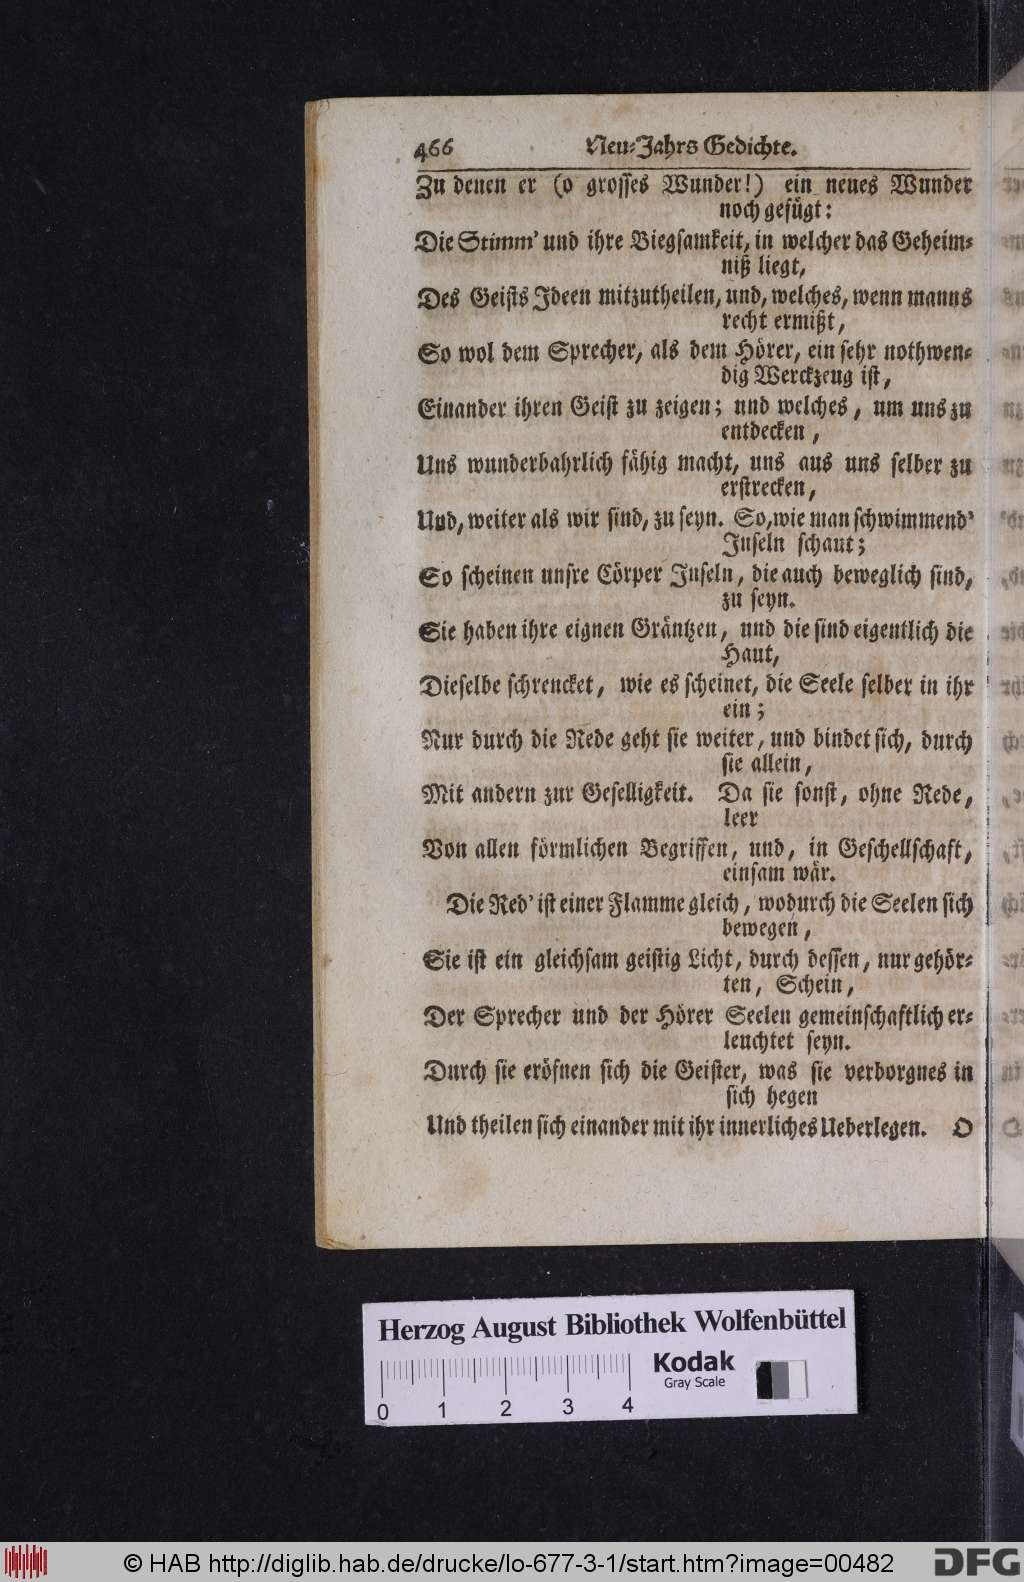 466 Neu-Jahrs Gedichte.
Zu denen er (o grosses Wunder!) ein neues Wunder
noch gefügt:
Die Stimm' und ihre Biegsamkeit, in welcher das Geheim-
niß liegt,
Des Geists Ideen mitzutheilen, und, welches, wenn manns
recht ermißt,
So wol dem Sprecher, als dem Hörer, ein sehr nothwen-
dig Werckzeug ist,
Einander ihren Geist zu zeigen; und welches, um uns zu
entdecken,
Uns wunderbahrlich fähig macht, uns aus uns selber zu
erstrecken,
Und, weiter als wir sind, zu seyn. So, wie man schwimmend'
Inseln schaut;
So scheinen unsre Cörper Inseln, die auch beweglich sind,
zu seyn.
Sie haben ihre eignen Gräntzen, und die sind eigentlich die
Haut,
Dieselbe schrencket, wie es scheinet, die Seele selber in ihr
ein;
Nur durch die Rede geht sie weiter, und bindet sich, durch
sie allein,
Mit andern zur Geselligkeit. Da sie sonst, ohne Rede,
leer
Von allen förmlichen Begriffen, und, in Geschellschaft,
einsam wär.
Die Red' ist einer Flamme gleich, wodurch die Seelen sich
bewegen,
Sie ist ein gleichsam geistig Licht, durch dessen, nur gehör-
ten, Schein,
Der Sprecher und der Hörer Seelen gemeinschaftlich er-
leuchtet seyn.
Durch sie eröfnen sich die Geister, was sie verborgnes in
sich hegen
Und theilen sich einander mit ihr innerliches Ueberlegen. O
Herzog August Bibliothek Wolfenbüttel
Kodak
Gray Scale
0 1 2 3 4
© HAB http://diglib.hab.de/drucke/lo-677-3-1/start.htm?image=00482
DFG